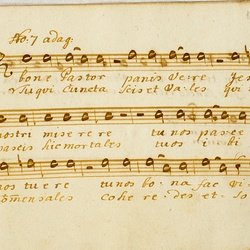 No: 7 adag:
bone Pastor panis vere Je
Tu qui cuncta scis et vales qui
nostri miserere tu nos pasce
pascis hic mortales tuos ibi
nos tuere tu nos bona fac vi
comensales cohæredes et so